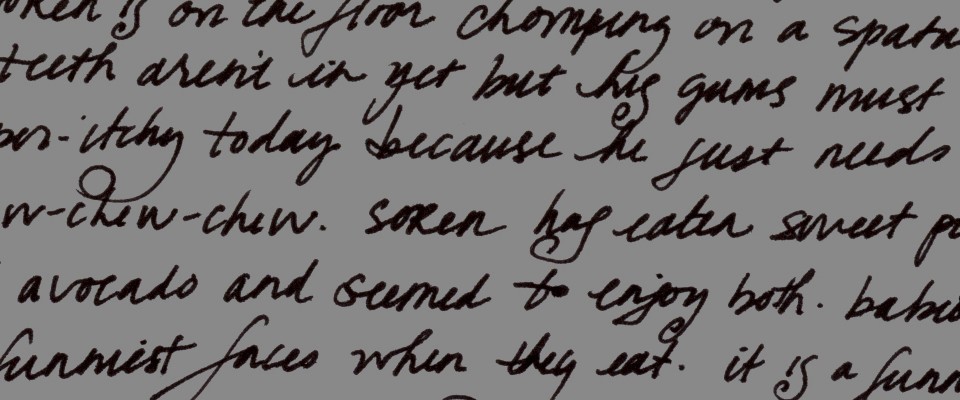 is on the floor chomping on a spatu
teeth aren't in yet but his gums must
per-itchy today because he just needs
w-chew-chew. soren has eaten sweet po
avocado and seemed to enjoy both. babie
funniest faces when they eat. it is a funn